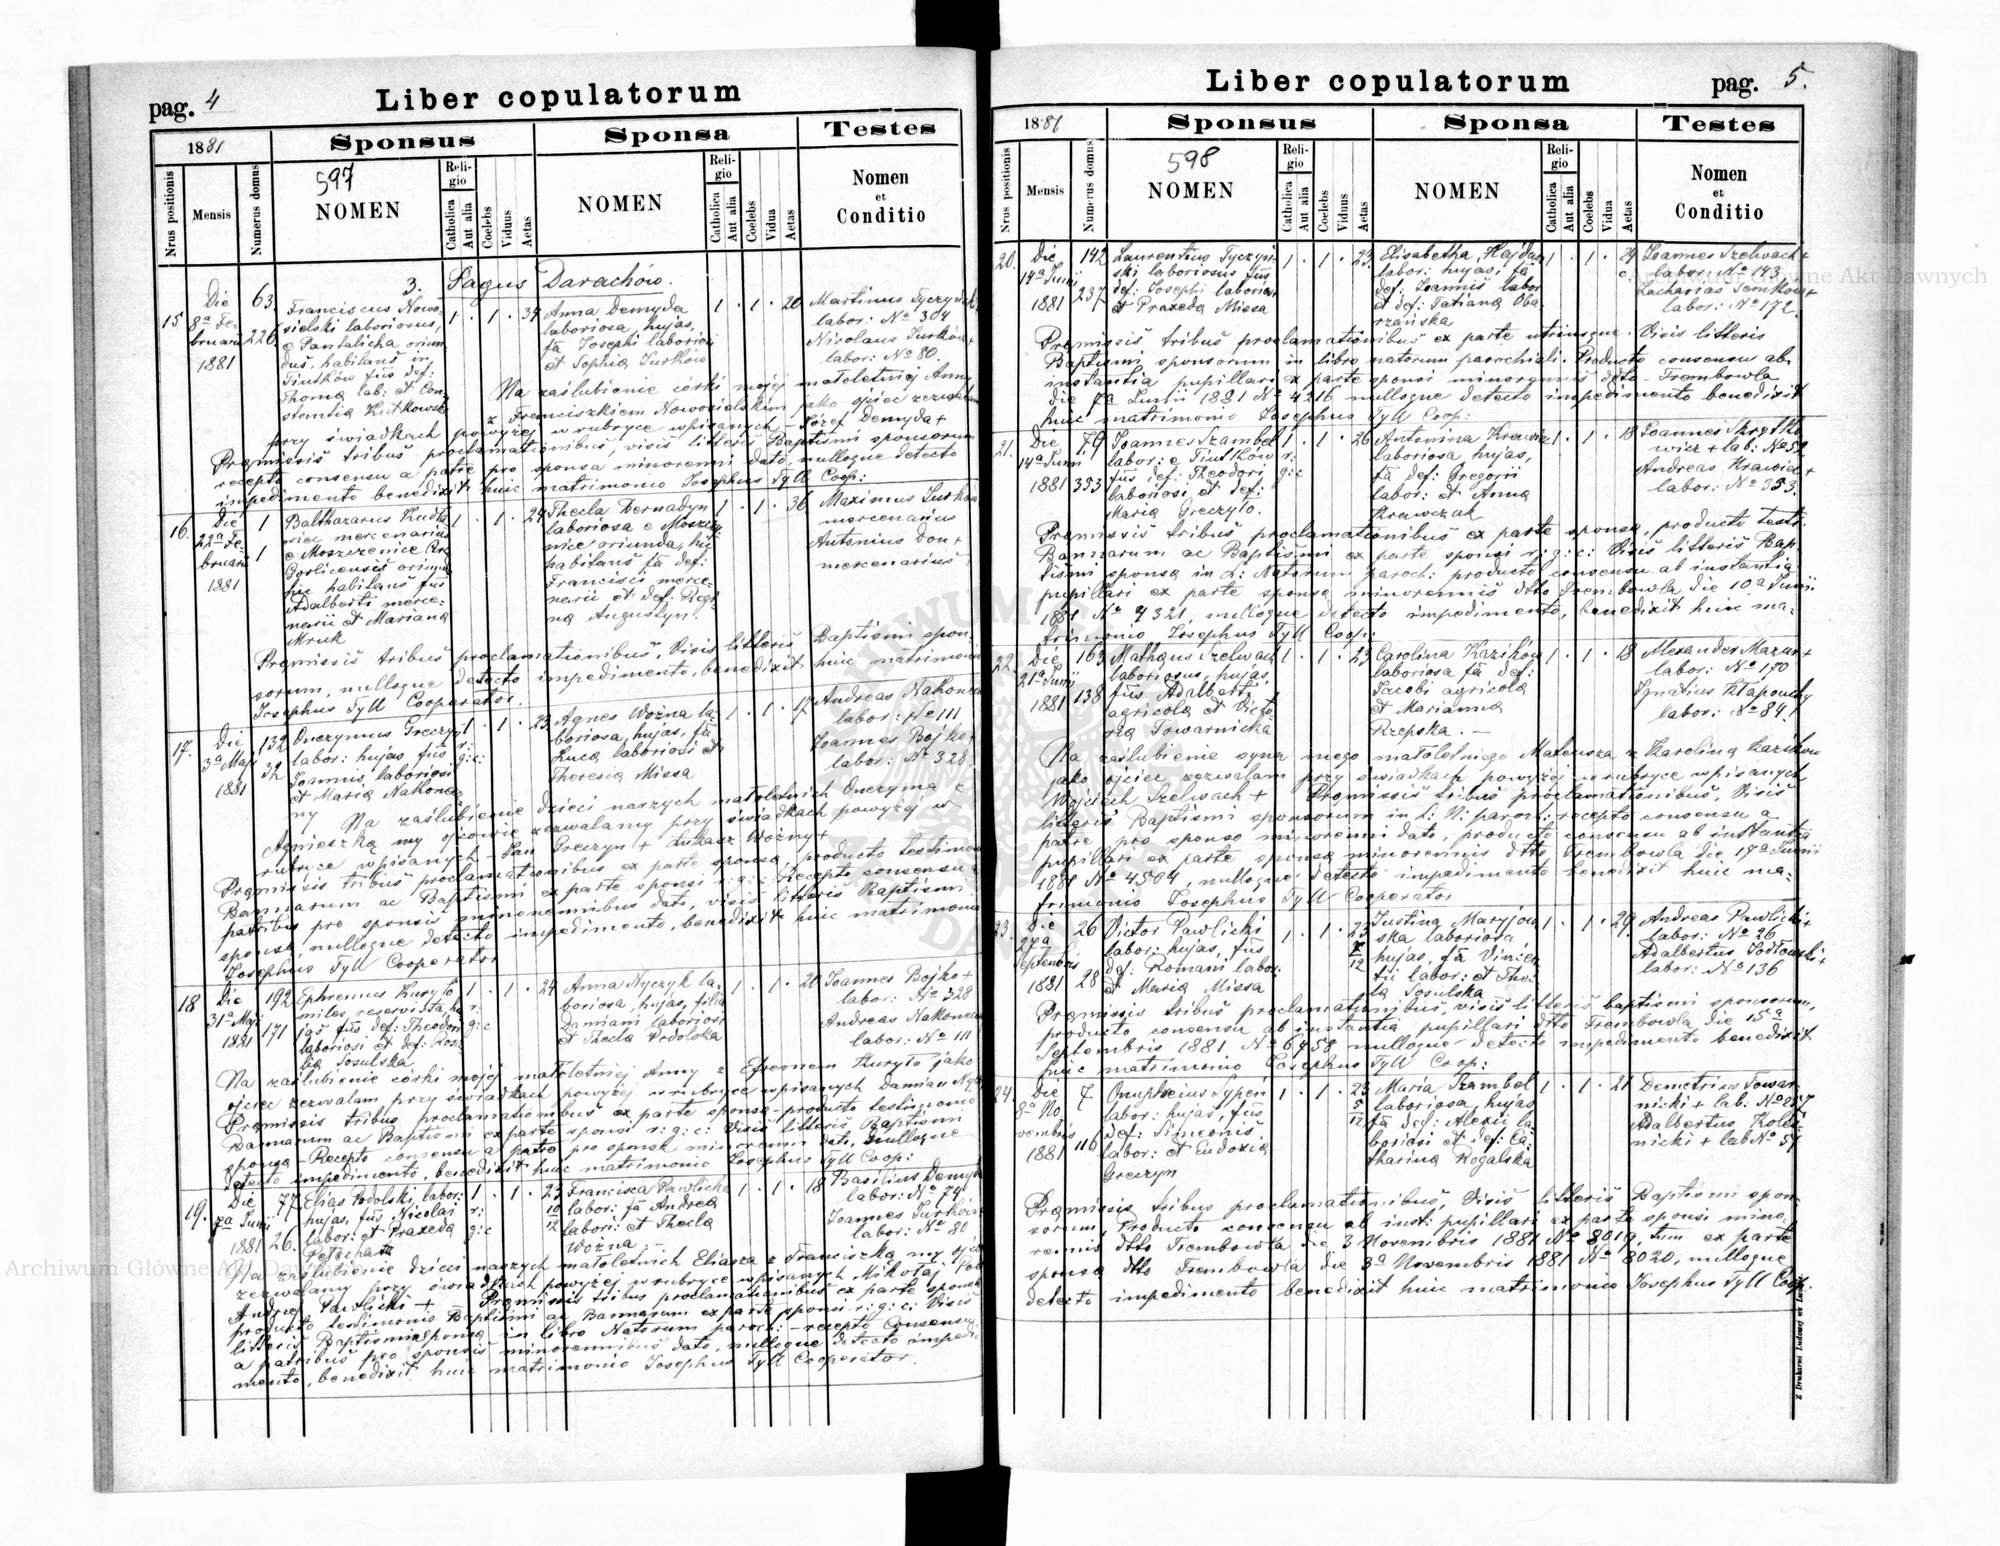 pag. 4
Liber copulatorum
1881
Sponsus
Sponsa
Testes
Nrus positionis
Mensis
Numerus domus
597
NOMEN
Religio
Catholica
Aut alia
Coelebs
Viduus
Aetas
NOMEN
Religio
Catholica
Aut alia
Coelebs
Vidua
Aetas
Nomen
et
Conditio
3. Pagus Darachów.
15
Die
8a Februarii
1881
63
226
Franciscus Nowosielski laboriosus,
e Pantalicha oriundus, habitans in
Tiutków fius def:
Thoma lab: et Constantia Rutkowska
1 . 1 .
Anna Demyda
laboriosa, hujas,
fa Josephi laboriosi
et Sophia Turków
1 . 1 . 20
Martinus Tyczyński
labor: No 304
Nicolaus Turków +
labor: No 80.
Na zaślubienie córki mojej małoletniej Anny
z Franciszkiem Nowosielskim jako ojciec zezwalam
przy świadkach powyżej w rubryce wpisanych – Józef Demyda +
Premissis tribus proclamationibus, visis litteris Baptismi sponsorum
recepto consensu a patre pro sponsa minorenni dato, nulloque detecto
impedimento benedixit huic matrimonio Josephus Tyll Coop:
16.
Die
22a Februarii
1881
1
1
Balthazarus
mercenarius
e Moszczenice
Gorlicensis
hic habitans fius
Adalberti mercenarii et Marianna
Mruk
1 . 1 .
Thecla Bernadyn
laboriosa e Moszczenice oriunda, hic
habitans fa def:
Francisci mercenarii et def: Regina Augustyn.
1 . 1 . 36
Maximus Turków
mercenarius
Antonius
mercenarius
Premissis tribus proclamationibus, Visis litteris Baptismi sponsorum, nulloque detecto impedimento, benedixit huic matrimonio
Josephus Tyll Cooperator.
17.
Die
3a Maji
1881
132
32
Onezymus Greczyn
labor: hujas fius
Joannis laboriosi
et Maria Nakoneczny
1 r: g: c:
. 1 . 23
Agnes Woźna laboriosa, hujas, fa
Luca laboriosi et
Theresia Missa
1 . 1 . 17
Andreas Nakoneczny
labor: No 111
Joannes Bojko +
labor: No 328
Na zaślubienie dzieci naszych małoletnich Onezyma z
Agnieszką my ojcowie zezwalamy przy świadkach powyżej w
rubryce wpisanych – Jan Greczyn + Łukasz Woźny +
Premissis tribus proclamationibus ex parte sponsa, producto testimonio
Bannarum ac Baptismi ex parte sponsi r: g: c: Recepto consensu a
patribus pro sponsis minorennibus dato, visis litteris Baptismi
sponsa nulloque detecto impedimento, benedixit huic matrimonio
Josephus Tyll Cooperator
18
Die
31a Maji
1881
192
171
Ephremus Kuryło
miles reservista, hujas fius def: Theodori
laboriosi et def: Rosalia Sosulska
1 r: g: c
. 1 . 24
Anna Nyczyk laboriosa, hujas, filia
Damiani laboriosi
et Thecla Podolska
1 . 1 . 20
Joannes Bojko +
labor: No 328
Andreas Nakoneczny
labor: No 111
Na zaślubienie córki mojej małoletniej Anny z Efremem Kuryło jako
ojciec zezwalam przy świadkach powyżej w rubryce wpisanych Damian
Premissis tribus proclamationibus ex parte sponsa – producto testimonio
Bannarum ac Baptismi ex parte sponsi r: g: c: Visis litteris Baptismi
sponsa – Recepto consensu a patre pro sponsa minorenni dato, nulloque
detecto impedimento, benedixit huic matrimonio Josephus Tyll Coop:
19.
Die
7a Junii
1881
77
26.
Elias Podolski, labor:
hujas, fius Nicolai
labor: et Praxeda
1 r: g: c
. 1 . 23 10/12
Francisca Pawlicka
labor: fa Andrea
labori: et Thecla
Woźna –
1 . 1 . 18
Basilius Demyda
labor: No 74
Joannes Turków
labor: No 80
Na zaślubienie dzieci naszych małoletnich Eliasza z Franciszką my ojcowie
zezwalamy przy świadkach powyżej w rubryce wpisanych Mikołaj
Andrej Pawlicki + Premissis tribus proclamationibus ex parte sponsa
producto testimonio Baptismi ac Bannarum ex parte sponsi r: g: c: Visis
litteris Baptismi sponsa in libro Natorum paroch: – recepto consensu
a patribus pro sponsis minorennibus dato, nulloque detecto impedimento, benedixit huic matrimonio Josephus Tyll Cooperator.
Liber copulatorum
pag. 5.
1881
Sponsus
Sponsa
Testes
Nrus positionis
Mensis
Numerus domus
598
NOMEN
Religio
Catholica
Aut alia
Coelebs
Viduus
Aetas
NOMEN
Religio
Catholica
Aut alia
Coelebs
Vidua
Aetas
Nomen
et
Conditio
20.
Die
14a Junii
1881
142
237
Laurentius Tyczyński laboriosus fius
def: Josephi laboriosi
et Praxeda Missa
1 . 1 . 23
Elisabetha Hajdas
labor: hujas, fa
def: Joannis labor
et def: Tatiana Obarzańska
1 . 1 . 24
Joannes Szelwach +
labor: No 143
Zacharias
labor: No 172.
Premissis tribus proclamationibus ex parte utriusque. Visis litteris
Baptismi sponsorum in libro natorum parochiali. Producto consensu ab
instantia pupillari ex parte sponsi minorennis ddto – Trembowla
die 7a Junii 1881 No 4216 nulloque detecto impedimento benedixit
huic matrimonio Josephus Tyll Coop:
21.
Die
14a Junii
1881
79
353
Joannes Szambel
labor: e Tiutków
fius def: Theodori
laboriosi et def:
Maria Greczyło.
1 r: g: c
. 1 . 26
Antonina Krawiec
laboriosa hujas,
fa def: Gregorii
labor: et Anna
Krawczuk
1 . 1 . 18
Joannes
+ lab: No 52
Andreas Krawiec +
labor: No 353.
Premissis tribus proclamationibus ex parte sponsa, producto testi:
Bannarum ac Baptismi ex parte sponsi r: g: c: Visis litteris Baptismi sponsa in L: Natorum paroch: producto consensu ab instantia
pupillari ex parte sponsa minorennis ddto Trembowla die 10a Junii
1881 No 4321, nulloque detecto impedimento, benedixit huic matrimonio Josephus Tyll Coop:
22.
Die
21a Junii
1881
163
138
Matheus Szelwach
laboriosus, hujas,
fius Adalberti
agricola et Victoria Towarnicka
1 . 1 . 23
Carolina Kazików
laboriosa fa def:
Jacobi agricola
et Marianna
Rzepska. –
1 . 1 . 18
Alexander Mazur +
labor: No 170
Ignatius Kłapouchy
labor: No 84
Na zaślubienie syna mego małoletniego Mateusza z Karoliną Kazików
jako ojciec zezwalam przy świadkach powyżej w rubryce wpisanych
Wojciech Szelwach + Premissis tribus proclamationibus, Visis
litteris Baptismi sponsorum in L: N: paroch: recepto consensu a
patre pro sponso minorenni dato, producto consensu ab instantia
pupillari ex parte sponsa minorennis ddto Trembowla die 17a Junii
1881 No 4504, nulloque detecto impedimento benedixit huic matrimonio Josephus Tyll Cooperator
23.
Die
27a
Septembris
1881
26
28
Victor Pawlicki
labor: hujas, fius
def: Romani labor:
et Maria Missa
1 . 1 . 23
Justina Maryjowska laboriosa
hujas, fa Vincentii labor: et Thecla Sosulska
1 . 1 . 29
Andreas Pawlicki +
labor: No 26
Adalbertus Sodłowski +
labor: No 136
Premissis tribus proclamationibus, visis litteris baptismi sponsorum,
producto consensu ab instantia pupillari ddto Trembowla die 15a
Septembris 1881 No 6458 nulloque detecto impedimento benedixit
huic matrimonio Josephus Tyll Coop:
24.
Die
8a Novembris
1881
7
116
Onuphrius Sypeń
labor: hujas, fius
def: Simeonis
labor: et Eudoxia
Greczyn
1 . 1 . 23 5/12
Maria Szambel
laboriosa, hujas
fa def: Alexii laboriosi et def: Catharina Rogalska
1 . 1 . 21
Demetrius Towarnicki + lab: No 257
Adalbertus
+ lab No 57
Premissis tribus proclamationibus, Visis litteris Baptismi sponsorum, Producto consensu ab inst: pupillari ex parte sponsi minorennis ddto Trembowla die 3 Novembris 1881 No 8019, tum ex parte
sponsa ddto Trembowla die 3a Novembris 1881 No 8020, nulloque
detecto impedimento benedixit huic matrimonio Josephus Tyll Coop.
Archiwum Główne Akt Dawnych
Archiwum Główne Akt Dawnych